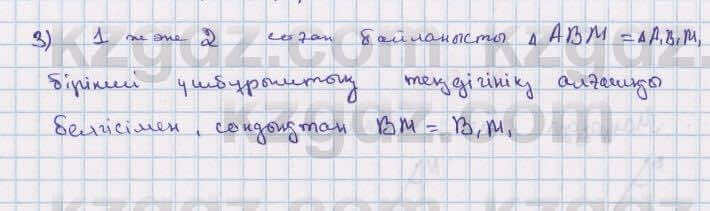 3) 1 және 2 соған байланысты △ABM = △A₁B₁M₁
бірінші үшбұрыштың теңдігінің алғашқы
белгісімен, сондықтан BM = B₁M₁
kzgdz.com